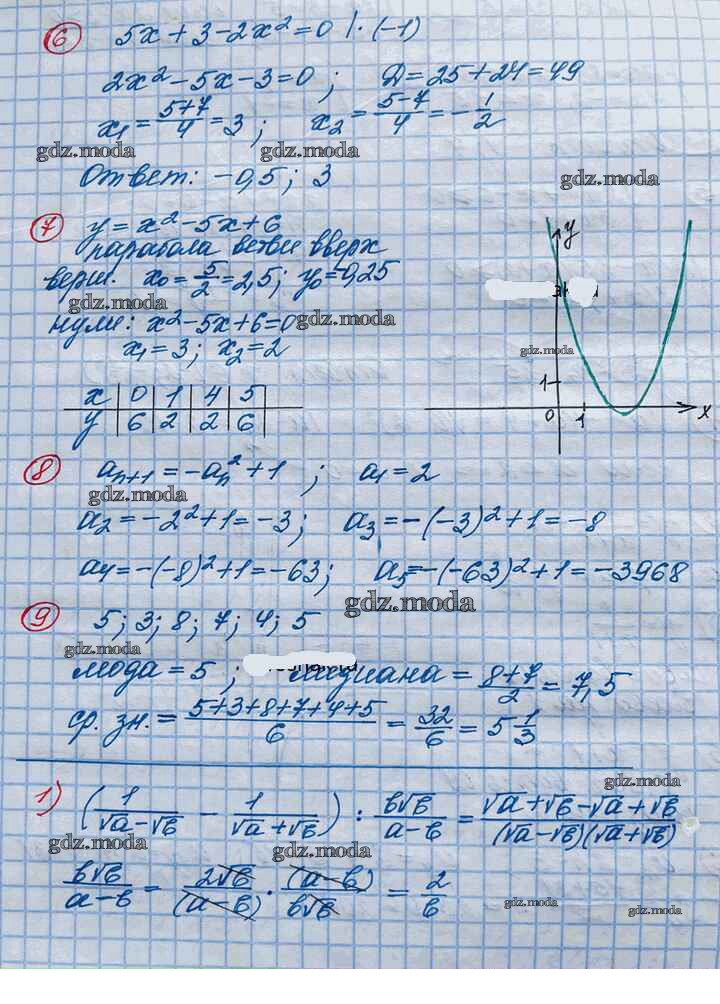 6 5x + 3 - 2x² = 0 | · (-1)
2x² - 5x - 3 = 0 ; Д = 25 + 24 = 49
x₁ = (5+7)/4 = 3 ; x₂ = (5-7)/4 = -1/2
gdz.moda gdz.moda
Ответ: -0,5 ; 3 gdz.moda
7 y = x² - 5x + 6
парабола ветви вверх
верш. x₀ = 5/2 = 2,5 ; y₀ = -0,25
gdz.moda
нули: x² - 5x + 6 = 0 gdz.moda
x₁ = 3 ; x₂ = 2
x | 0 | 1 | 4 | 5
y | 6 | 2 | 2 | 6
y
gdz.moda
1
0 1 x
8 aₙ₊₁ = -aₙ² + 1 ; a₁ = 2
gdz.moda
a₂ = -2² + 1 = -3 ; a₃ = -(-3)² + 1 = -8
a₄ = -(-8)² + 1 = -63 ; a₅ = -(-63)² + 1 = -3968
gdz.moda
9 5 ; 3 ; 8 ; 7 ; 4 ; 5
gdz.moda
мода = 5 ; медиана = (8+7)/2 = 7,5
ср. зн. = (5+3+8+7+4+5)/6 = 32/6 = 5 1/3
gdz.moda
1) (1/(√a - √в) - 1/(√a + √в)) : в√в/(a-в) = (√a + √в - √a + √в)/((√a - √в)(√a + √в))
gdz.moda gdz.moda
в√в/(a-в) = 2√в/(a-в) · (a-в)/(в√в) = 2/в
gdz.moda gdz.moda